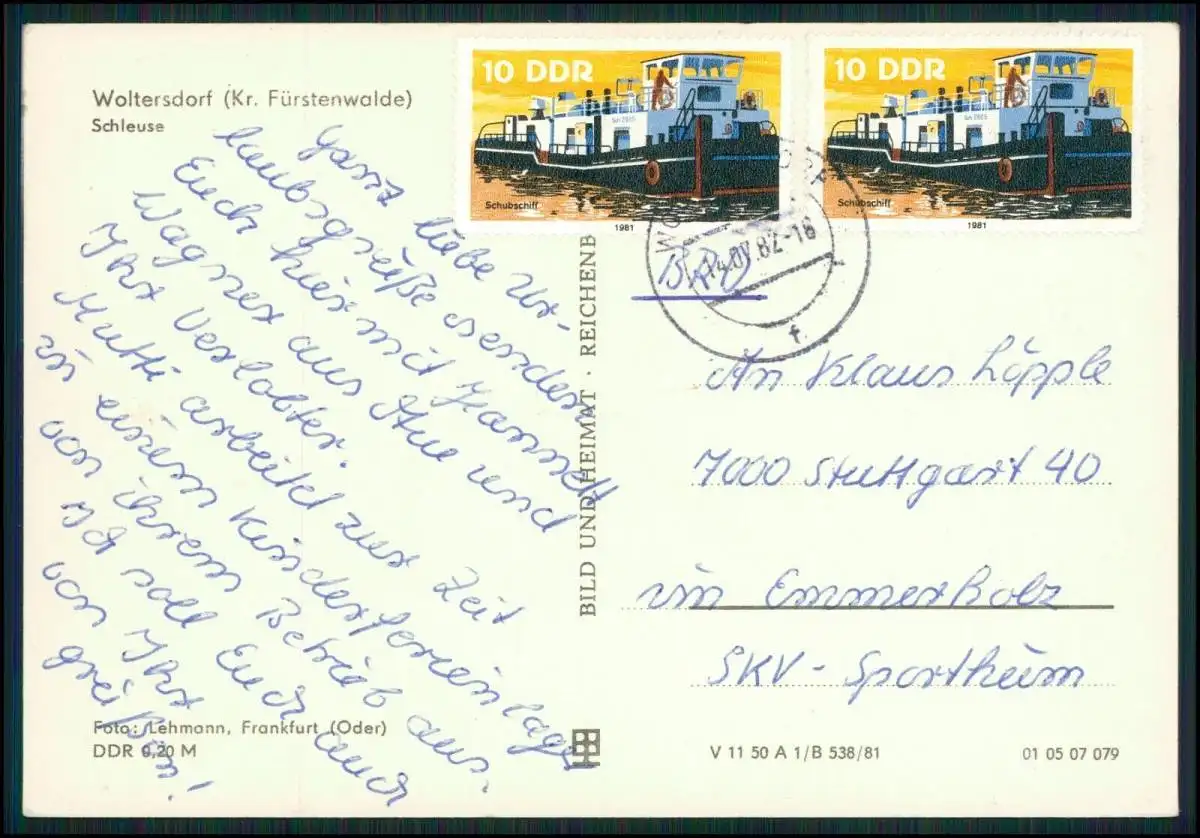 Woltersdorf (Kr. Fürstenwalde)
Schleuse
Ganz liebe Ur-
laubsgrüße senden
Euch hier mit Jannett
Wagner aus Aue und
Ihr Verlobter.
Mutti arbeitet zur Zeit
in einem Kinderferienlager
von ihrem Betrieb aus.
Ich soll Euch auch
von Ihr
grüßen!
Foto: Lehmann, Frankfurt (Oder)
DDR 0,20 M
BILD UND HEIMAT · REICHENB
10 DDR
Schubschiff
1981
10 DDR
Schubschiff
1981
82-18
f
BRD
An Klaus Löpple
7000 Stuttgart 40
im Emmerholz
SKV-Sportheim
V 11 50 A 1/B 538/81
01 05 07 079